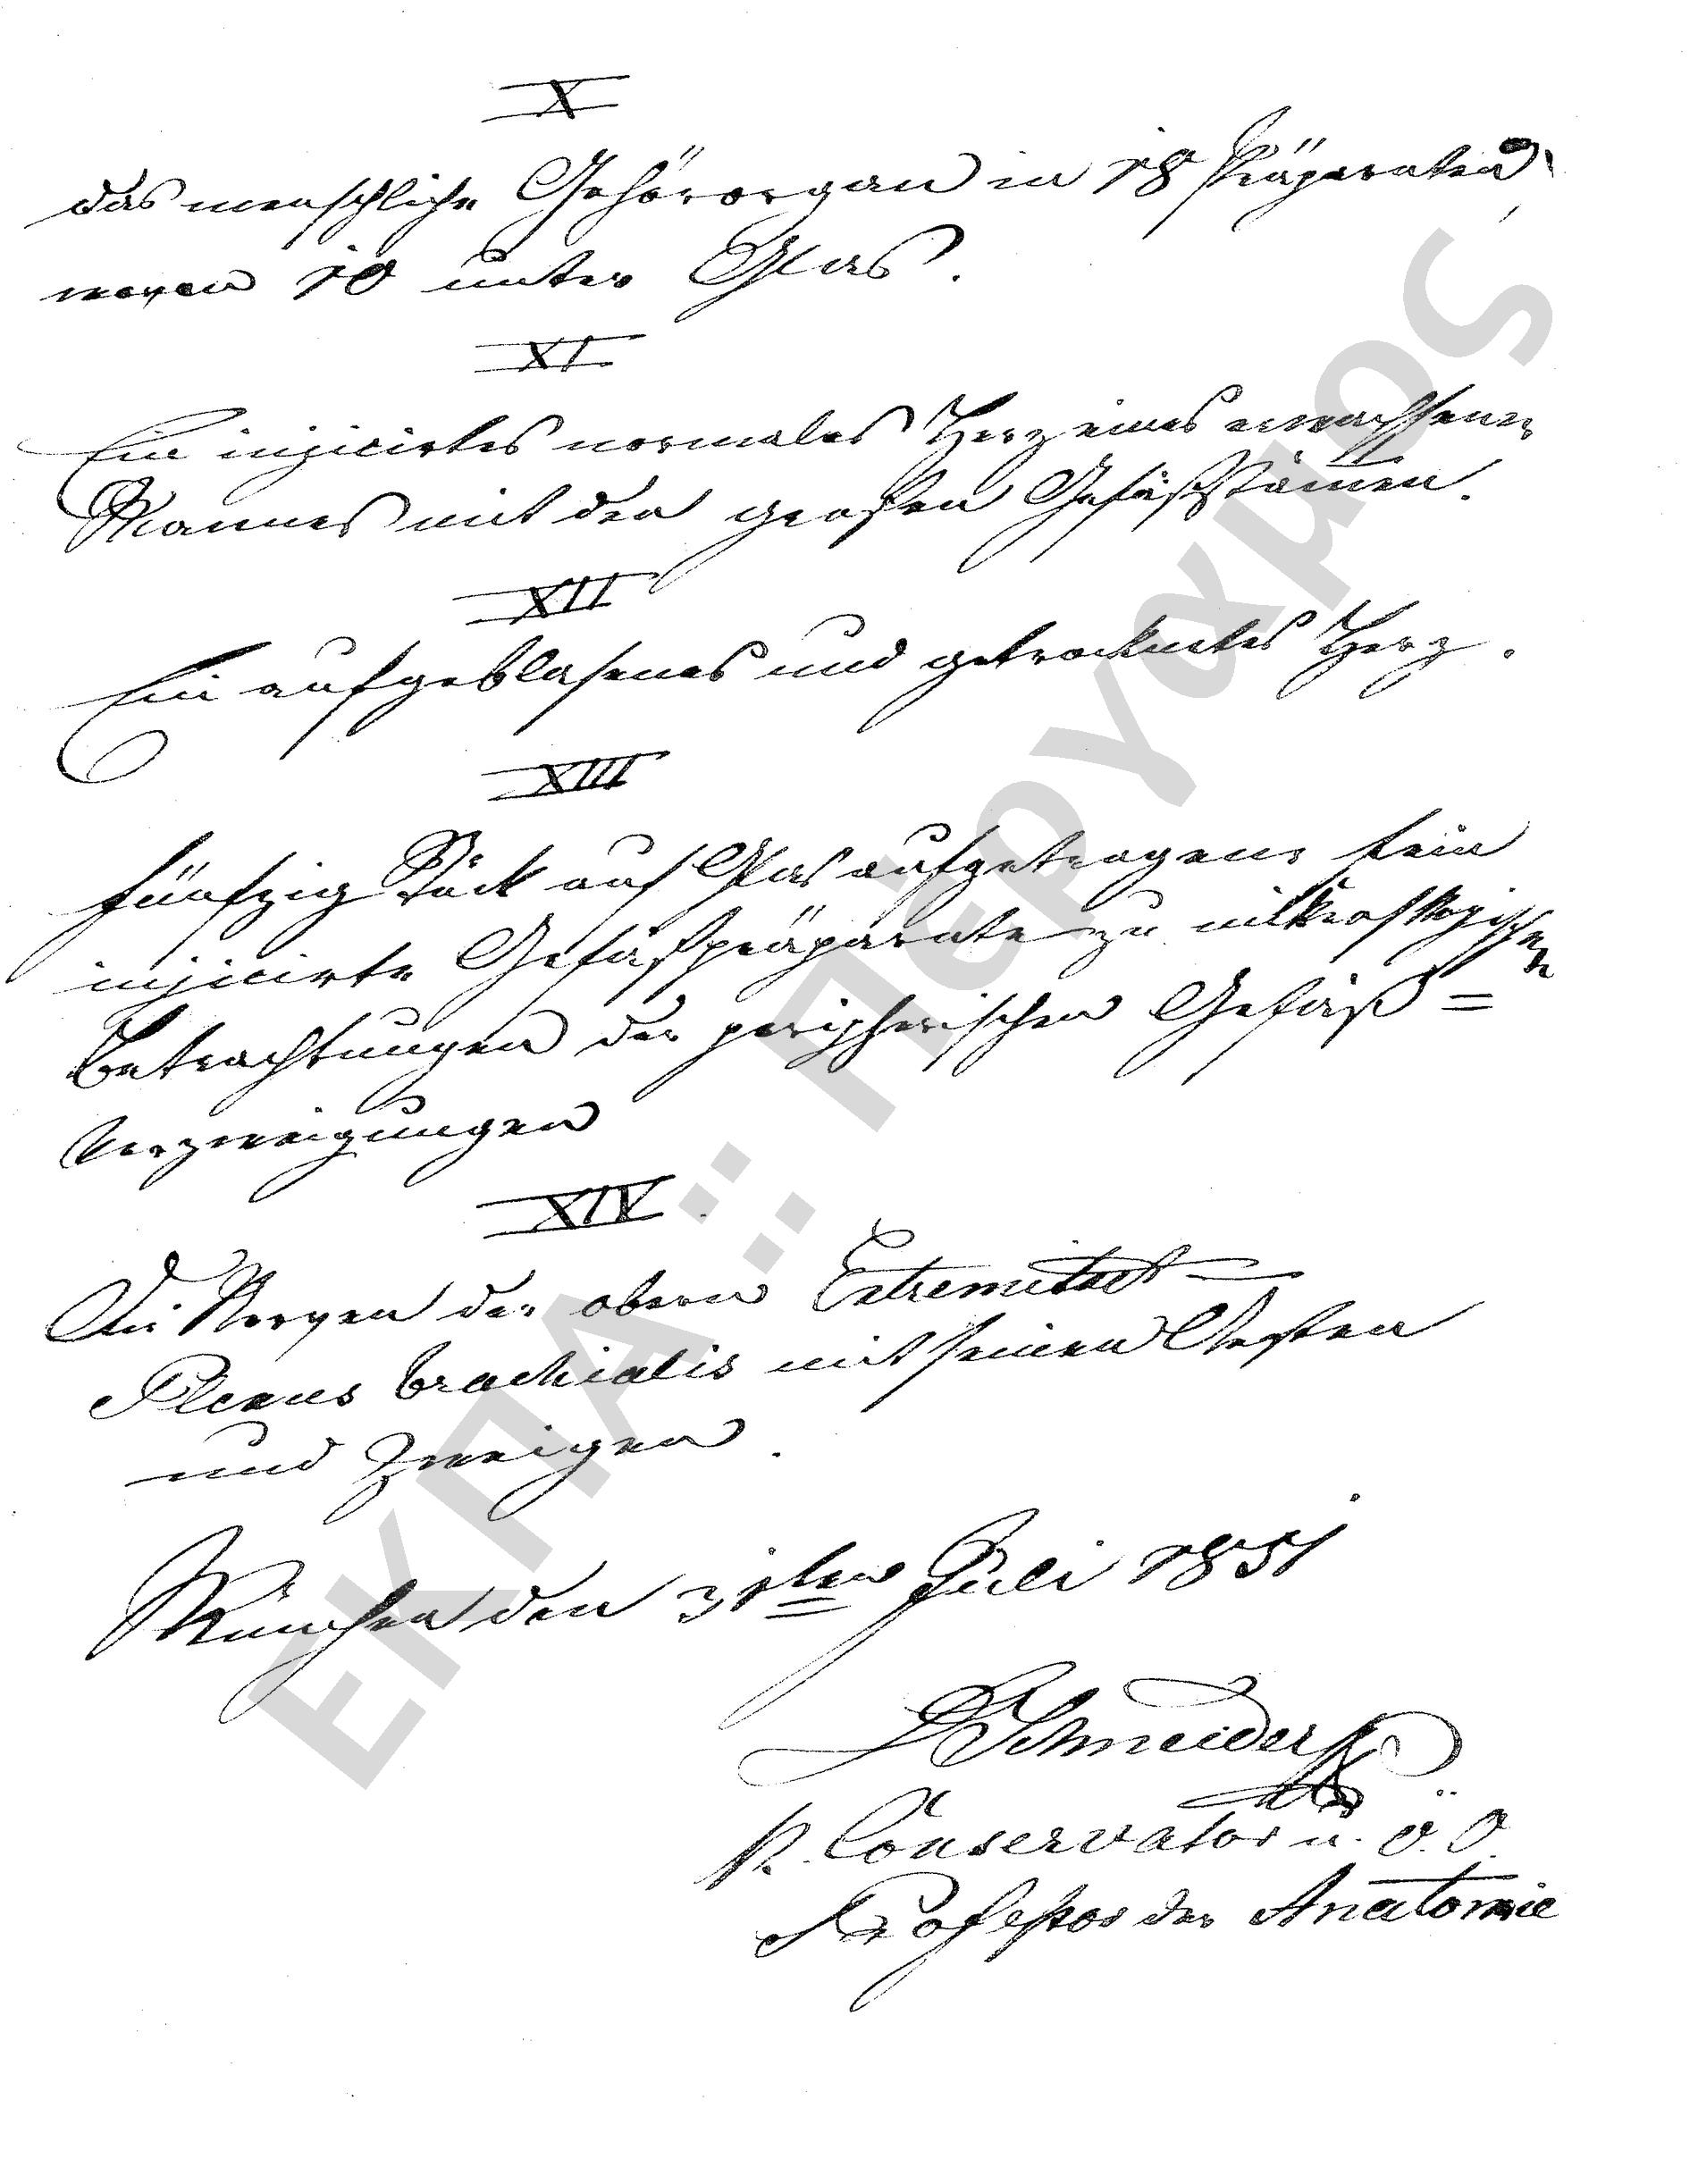 X
das menschliche Gehörorgan in 18 Präparaten,
wovon 10 unter Glas.
XI
Ein injicirtes normales Herz eines erwachsenen
Mannes mit den großen Gefäßstämen.
XII
Ein aufgeblasenes und getrocknetes Herz.
XIII
fünfzig Stück auf Glas aufgetragene fein
injicirte Gefäßpräparate zu mikroskopischen
Betrachtungen der peripherischen Gefäß=
Verzweigungen
XIV
Die Nerven der obern Extremitaet
Plexus brachialis mit seinen Aesten
und Zweigen.
München den 31ten Juli 1851
Schneider
K. Conservator u. ö. O.
Professor der Anatomie
ΕΚΠΑ:: Πέργαμος